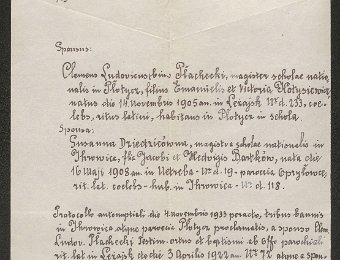 Sponsus:
Clemens Ludovicus (bin.) Płachecki, magister scholae natio-
nalis in Płotycz, filius Emanuelis et Victoria Płotysiewicz
natus die 14. novembris 1905 an. in Leżajsk Nr d. 233, coe-
lebs, ritus latini, habitans in Płotycz in schola.
Sponsa:
Susanna Dziedzicówna, magistra scholae nationalis in
Ihrowica, fka Jacobi et Hedvigis Bartków, nata die
16 Maji 1908 an. in Ustrzeba Nr d. 19. parocia Opryłowce,
rit. lat. coelebs hab. in Ihrowica Nr d. 118.
Protocollo antenuptiali die 4. novembris 1933 peracto, tribus bannis
in Ihrowica atque parocia Płotycz proclamatis, a sponso Clem.
Ludov. Płachecki testim. ortus et baptismi ab Offo parochiali
rit. lat. in Leżajsk de die 3 Aprilis 1922 an. Nr 72 atque a spon-